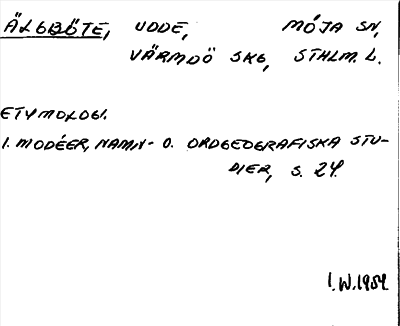 ÄLGBÖTE, UDDE, MÖJA SN,
VÄRMDÖ SKG, STHLM. L.
ETYMOLOGI.
I. MODÉER, NAMN- O. ORDGEOGRAFISKA STU-
DIER, S. 24.
I.W. 1954